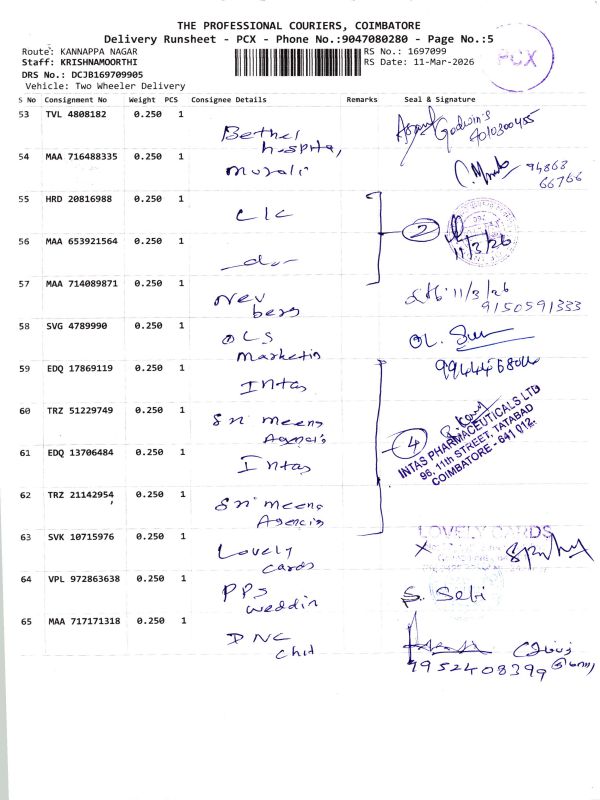 THE PROFESSIONAL COURIERS, COIMBATORE
Delivery Runsheet - PCX - Phone No.:9047080280 - Page No.:5
Route: KANNAPPA NAGAR
RS No.: 1697099
Staff: KRISHNAMOORTHI
RS Date: 11-Mar-2026
DRS No.: DCJB169709905
Vehicle: Two Wheeler Delivery
PCX
S No Consignment No Weight PCS Consignee Details Remarks Seal & Signature
53 TVL 4808182 0.250 1
Bethel
hospital
Godwin's
4010300455
54 MAA 716488335 0.250 1
Murali
94863
66766
55 HRD 20816988 0.250 1
CLC
2
11/3/26
56 MAA 653921564 0.250 1
—do—
57 MAA 714089871 0.250 1
New
berg
11/3/26
9150591333
58 SVG 4789990 0.250 1
OLS
Marketin
OL.
59 EDQ 17869119 0.250 1
Intas
60 TRZ 51229749 0.250 1
Sri meena
Agencis
4
INTAS PHARMACEUTICALS LTD
96, 11th STREET, TATABAD
COIMBATORE - 641 012.
61 EDQ 13706484 0.250 1
Intas
62 TRZ 21142954 0.250 1
Sri meena
Agencis
63 SVK 10715976 0.250 1
Lovely
cards
LOVELY CARDS
64 VPL 972863638 0.250 1
PPS
weddin
S. Sebi
65 MAA 717171318 0.250 1
DNC
chit
9952408399